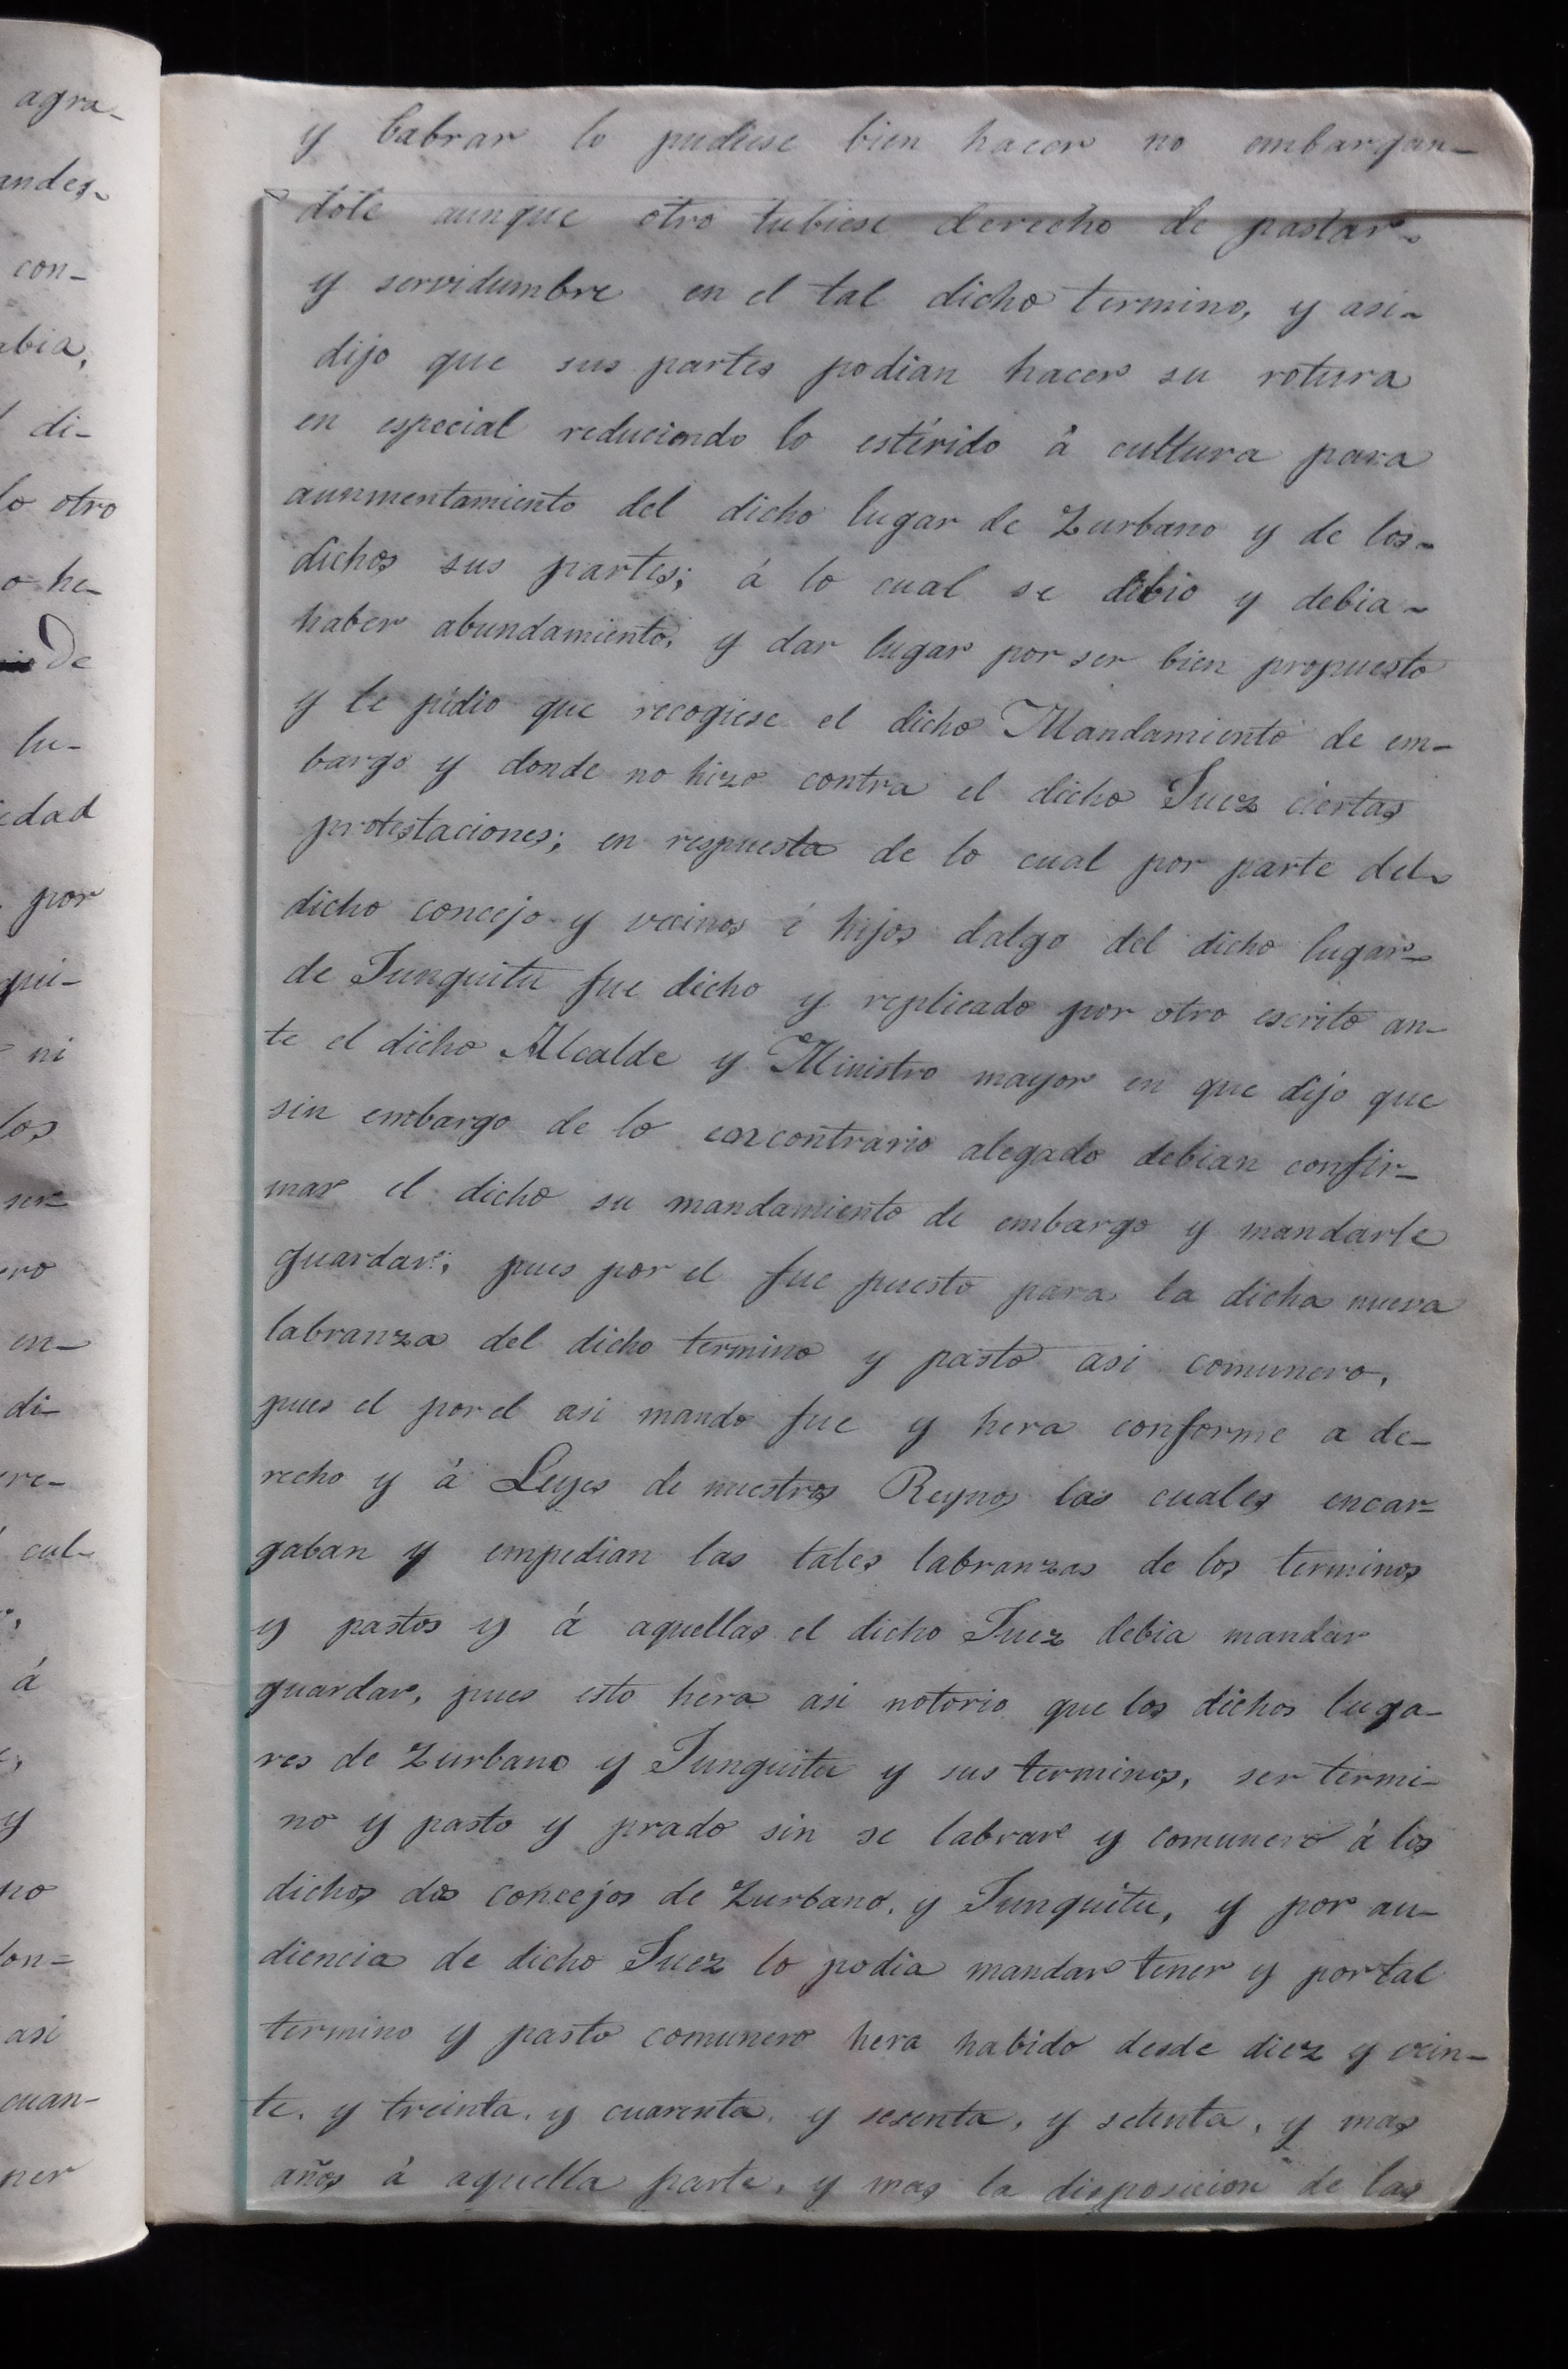 agra-
andes-
con-
abia,
di-
lo otro
o he-
De
lu-
edad
por
qui-
ni
los
ser-
ero
en-
di-
cre-
cul-
á
y
no
lon=
asi
cuan-
per
y labrar lo pudiese bien hacer no embargan-
dole aunque otro tubiese derecho de pastar-
y servidumbre en el tal dicho termino, y asi-
dijo que sus partes podian hacer su rotura
en especial reduciendo lo estérido á cultura para
aunmentamiento del dicho lugar de Zurbano y de los-
dichos sus partes; á lo cual se debio y debia-
haber abundamiento, y dar lugar por ser bien propuesto
y le pidio que recogiese el dicho Mandamiento de em-
bargo y donde no hizo contra el dicho Juez ciertas
protestaciones; en respuesta de lo cual por parte del-
dicho concejo y vecinos é hijos dalgo del dicho lugar-
de Junguitu fue dicho y replicado por otro escrito an-
te el dicho Alcalde y Ministro mayor en que dijo que
sin embargo de lo encontrario alegado debian confir-
mar el dicho su mandamiento de embargo y mandarle
guardar; pues por el fue puesto para la dicha nueva
labranza del dicho termino y pasto asi comunero,
pues el por el asi mando fue y hera conforme a de-
recho y á Leyes de nuestros Reynos las cuales encar-
gaban y empedian las tales labranzas de los terminos
y pastos y á aquellas el dicho Juez debia mandar
guardar, pues esto hera asi notorio que los dichos luga-
res de Zurbano y Junguitu y sus terminos, ser termi-
no y pasto y prado sin se labrar y comunero á los
dichos dos concejos de Zurbano, y Junguitu, y por au-
diencia de dicho Juez lo podia mandar tener y por tal
termino y pasto comunero hera habido desde diez y vein-
te, y treinta, y cuarenta, y sesenta, y setenta, y mas
años á aquella parte, y mas la disposicion de las